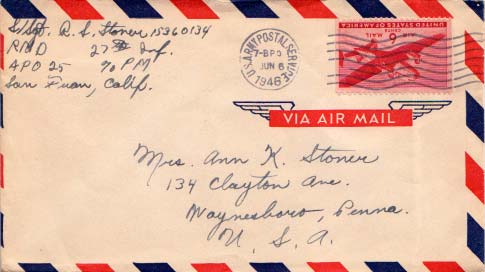 S/Sgt. R. S. Stoner 15360134
RND 27th Inf.
APO 25 % PM
San Fran, Calif.
U.S. ARMY POSTAL SERVICE
7-BPO
JUN 6
1946
UNITED STATES OF AMERICA
6 CENTS
AIR MAIL
VIA AIR MAIL
Mrs. Ann K. Stoner
134 Clayton Ave.
Waynesboro, Penna.
U. S. A.